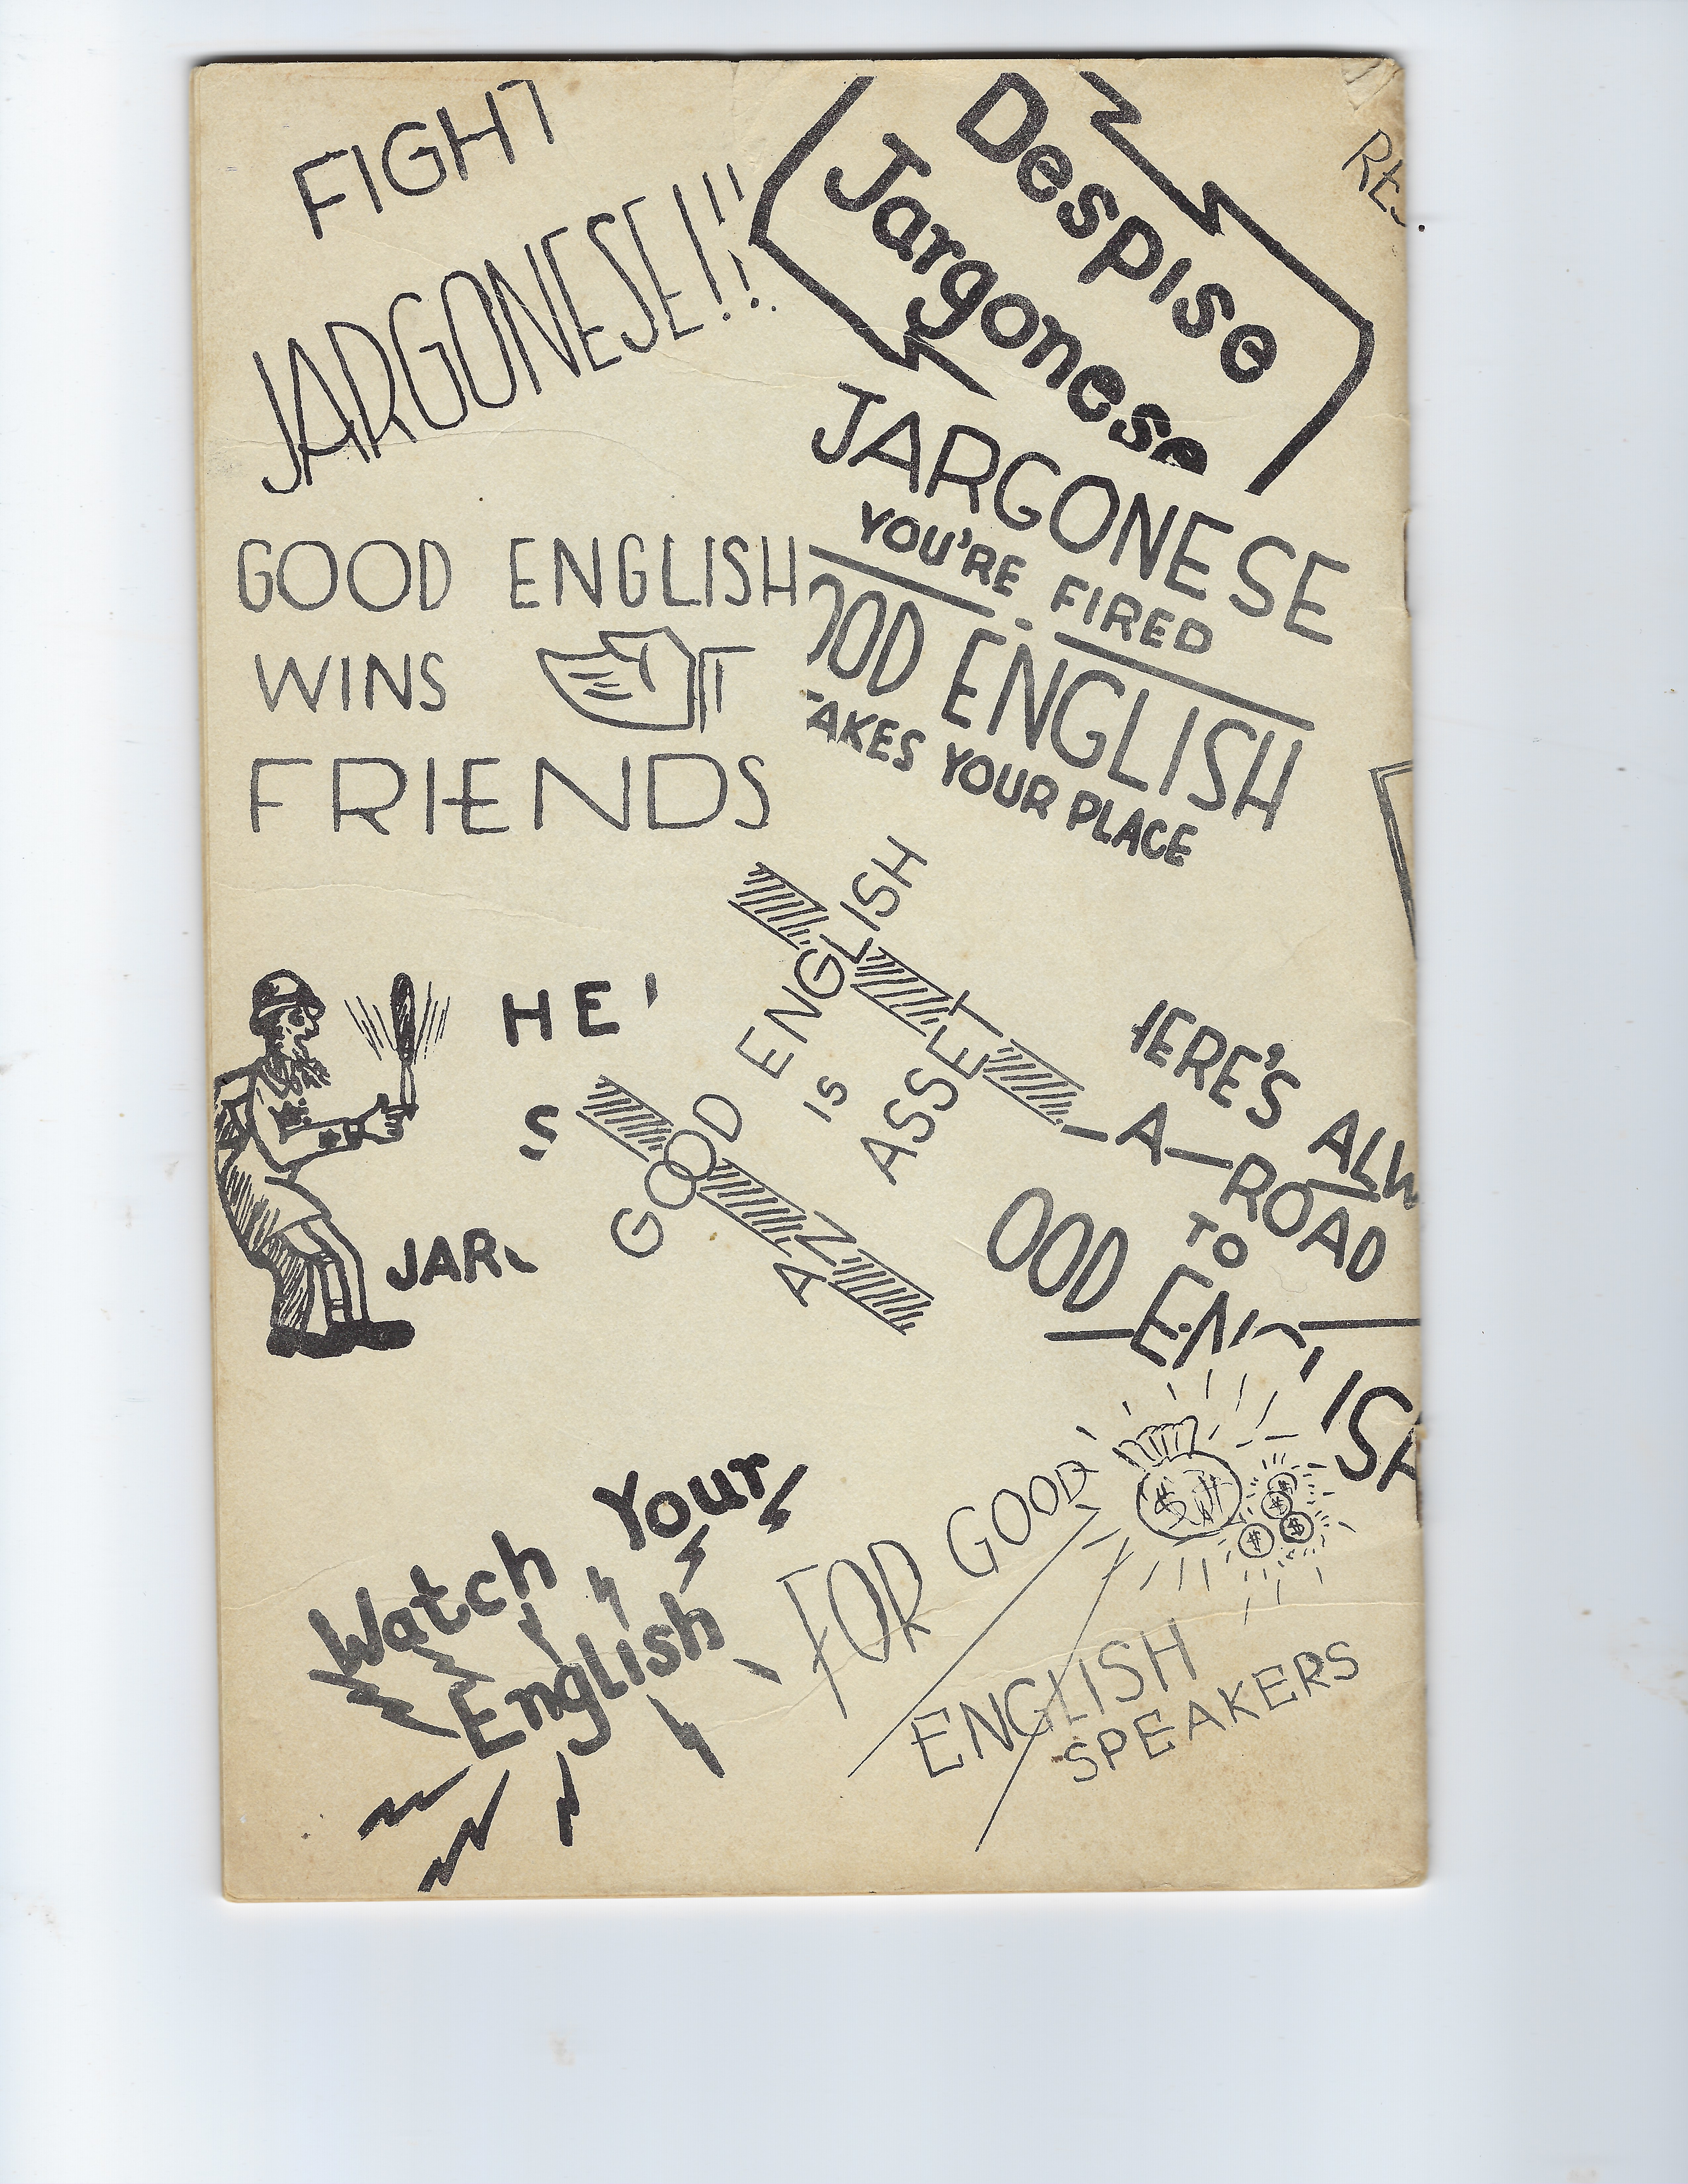 FIGHT
JARGONESE!!!
Despise
Jargonese
JARGONESE
YOU'RE FIRED
OOD ENGLISH
AKES YOUR PLACE
GOOD ENGLISH
WINS
FRIENDS
HE'
S
JAR
GOOD ENGLISH
IS
AN ASSET
HERE'S ALW
A ROAD
TO
OOD ENGLISH
Watch Your
English
FOR GOOD
ENGLISH
SPEAKERS